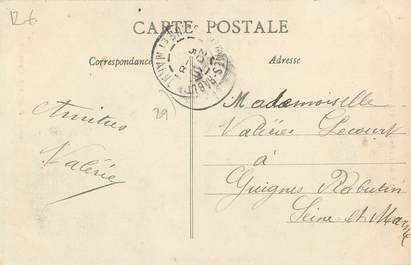 R6
CARTE POSTALE
Correspondance
Adresse
89
Amitiés
Valérie
Mademoiselle
Valérie Lecourt
à
Guignes Rabutin
Seine-et-Marne